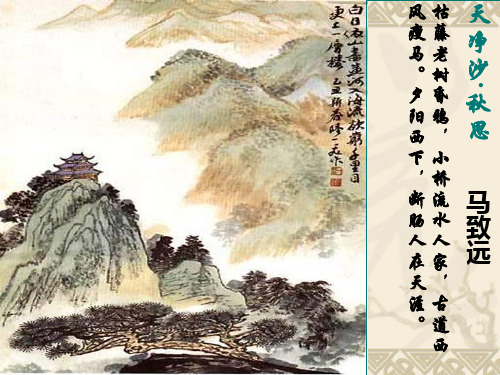 天净沙·秋思
马致远
枯藤老树昏鸦，小桥流水人家，古道西
风瘦马。夕阳西下，断肠人在天涯。
白日依山盡黃河入海流欲窮千里目
更上一層樓 乙丑新春